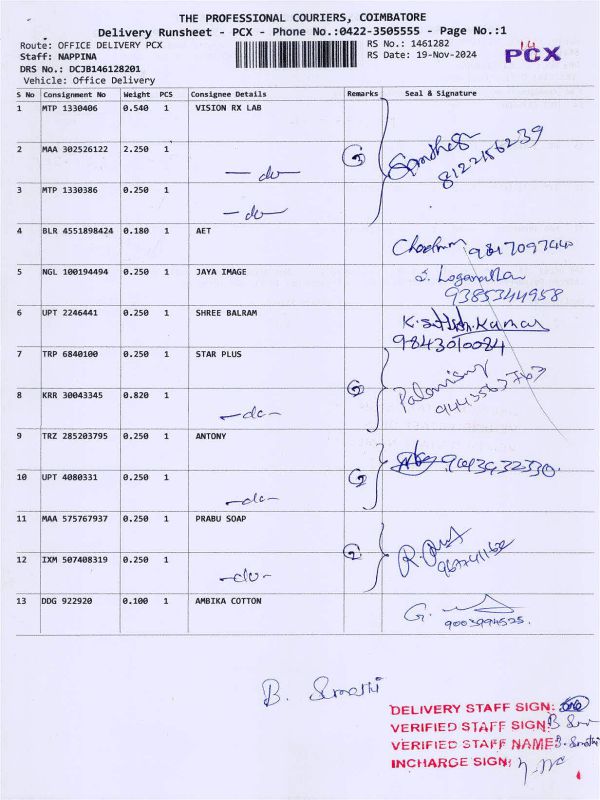 THE PROFESSIONAL COURIERS, COIMBATORE
Delivery Runsheet - PCX - Phone No.:0422-3505555 - Page No.:1
Route: OFFICE DELIVERY PCX
Staff: NAPPINA
DRS No.: DCJB146128201
Vehicle: Office Delivery
RS No.: 1461282
RS Date: 19-Nov-2024
14
PCX
S No Consignment No Weight PCS Consignee Details Remarks Seal & Signature
1 MTP 1330406 0.540 1 VISION RX LAB
2 MAA 302526122 2.250 1 -do- 3 8122156239
3 MTP 1330386 0.250 1 -do-
4 BLR 4551898424 0.180 1 AET
5 NGL 100194494 0.250 1 JAYA IMAGE S. Loganathan 9385344958
6 UPT 2246441 0.250 1 SHREE BALRAM K. Sathish Kumar 9843010084
7 TRP 6840100 0.250 1 STAR PLUS
8 KRR 30043345 0.820 1 -do- 2 Palanisamy
9 TRZ 285203795 0.250 1 ANTONY
10 UPT 4080331 0.250 1 -do- 2
11 MAA 575767937 0.250 1 PRABU SOAP
12 IXM 507408319 0.250 1 -do- 2
13 DDG 922920 0.100 1 AMBIKA COTTON G. 9003994525.
B. Smathi
DELIVERY STAFF SIGN:
VERIFIED STAFF SIGN: B
VERIFIED STAFF NAME: B. Smathi
INCHARGE SIGN: